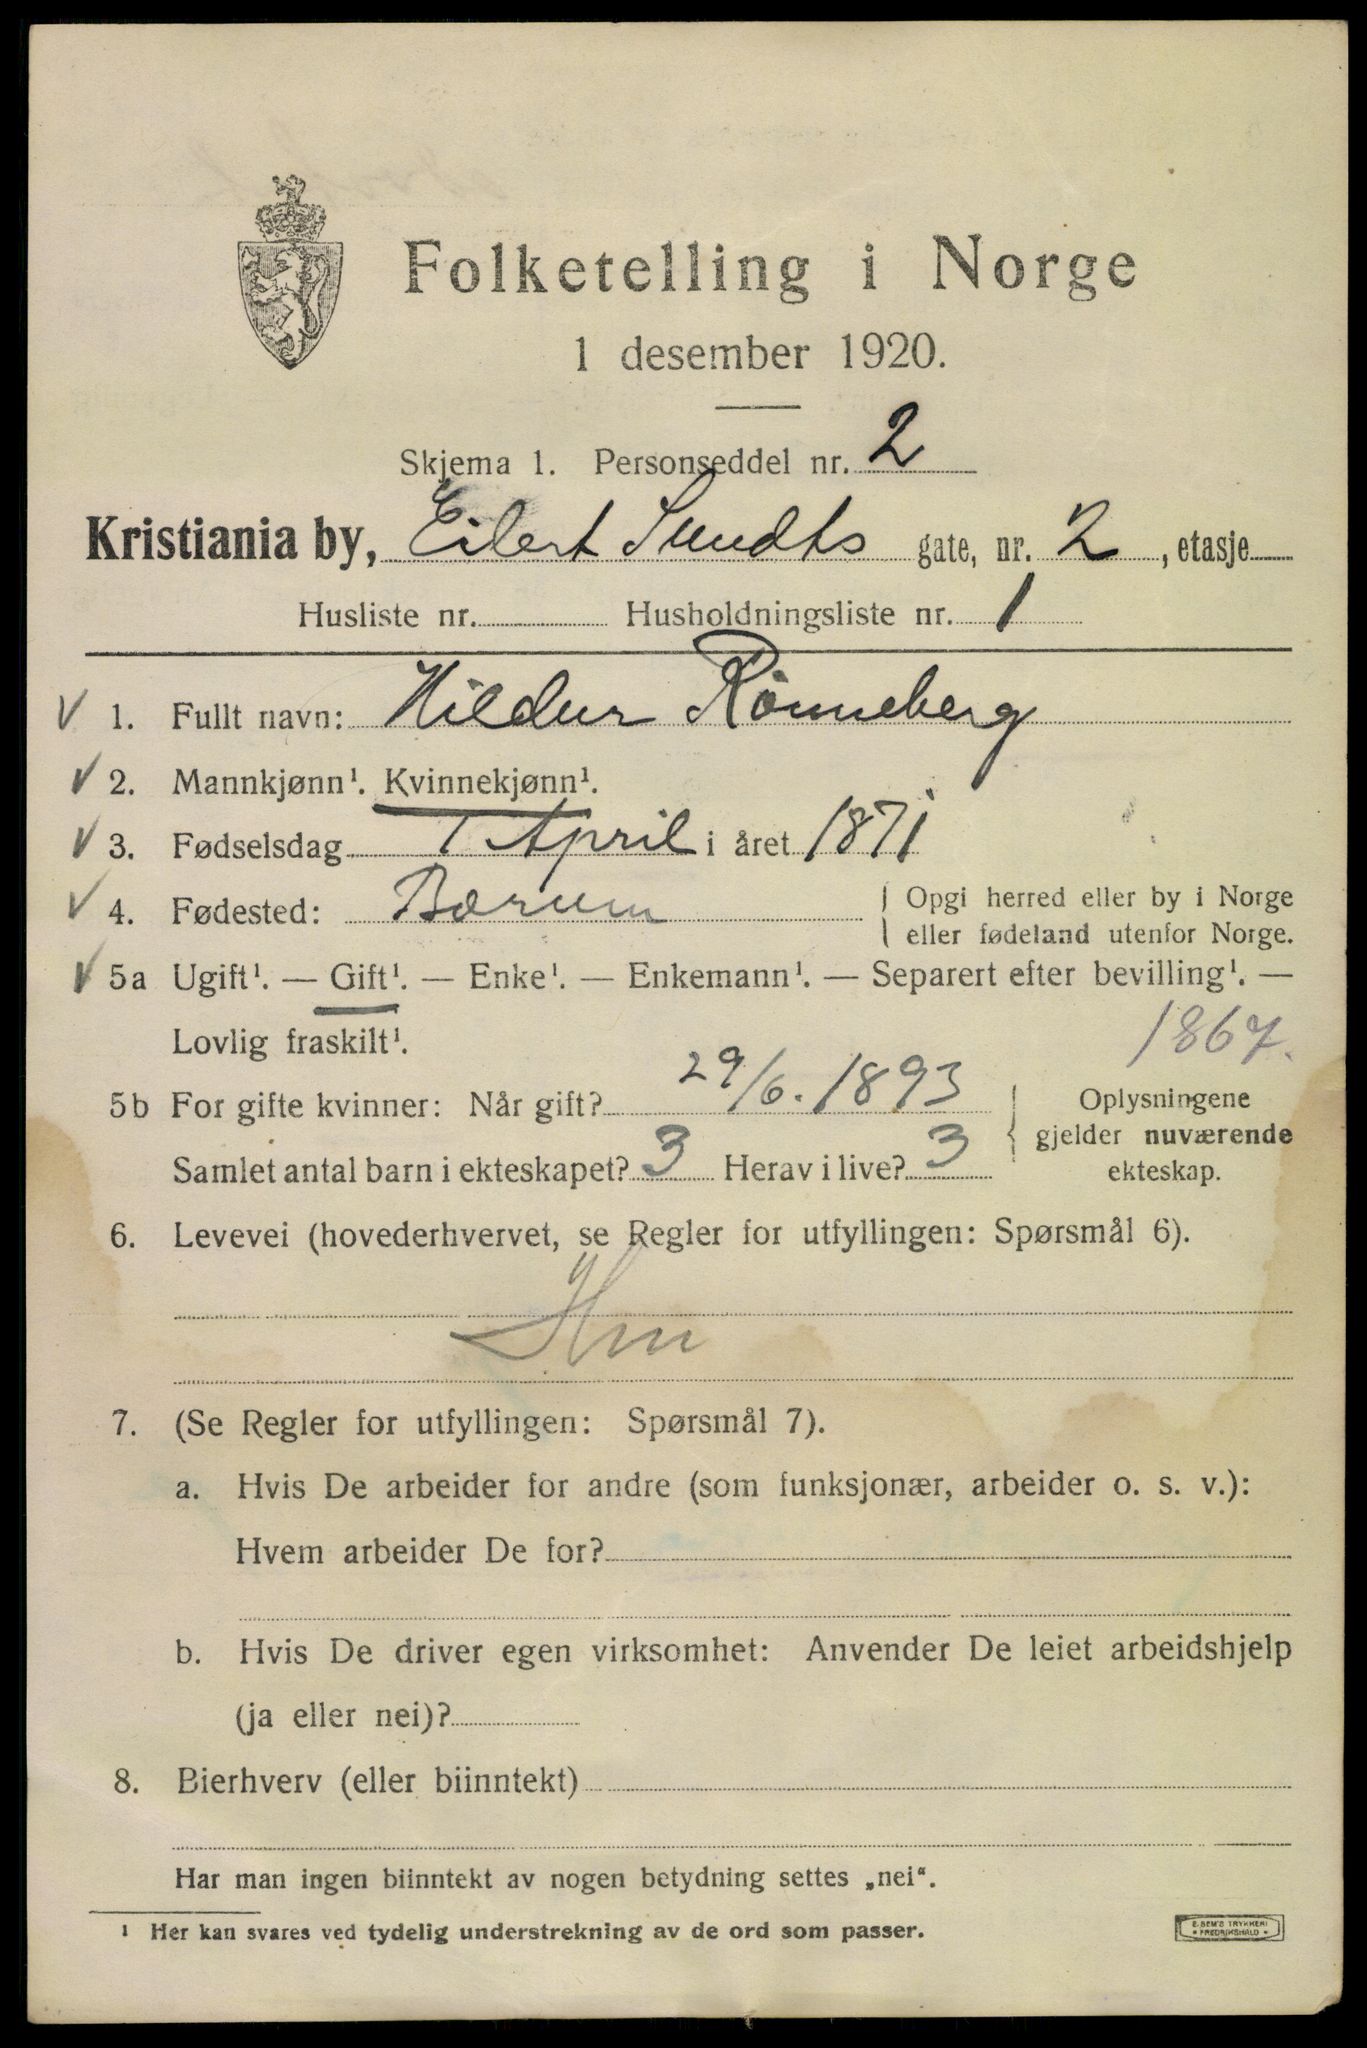 Folketelling i Norge
1 desember 1920.
Skjema 1. Personseddel nr. 2
Kristiania by, Eilert Sundts gate, nr. 2, etasje
Husliste nr. Husholdningsliste nr. 1
1. Fullt navn: Hildur Rönneberg
2. Mannkjønn¹. Kvinnekjønn¹.
3. Fødselsdag 1 April i året 1871
4. Fødested: Bærum
Opgi herred eller by i Norge
eller fødeland utenfor Norge.
5a Ugift¹. — Gift¹. — Enke¹. — Enkemann¹. — Separert efter bevilling¹. —
Lovlig fraskilt¹.
1867.
5b For gifte kvinner: Når gift? 29/6. 1893
Samlet antal barn i ekteskapet? 3 Herav i live? 3
Oplysningene
gjelder nuværende
ekteskap.
6. Levevei (hovederhvervet, se Regler for utfyllingen: Spørsmål 6).
Hm
7. (Se Regler for utfyllingen: Spørsmål 7).
a. Hvis De arbeider for andre (som funksjonær, arbeider o. s. v.):
Hvem arbeider De for?
b. Hvis De driver egen virksomhet: Anvender De leiet arbeidshjelp
(ja eller nei)?
8. Bierhverv (eller biinntekt)
Har man ingen biinntekt av nogen betydning settes „nei“.
¹ Her kan svares ved tydelig understrekning av de ord som passer.
E. SEM'S TRYKKERI
FREDRIKSHALD